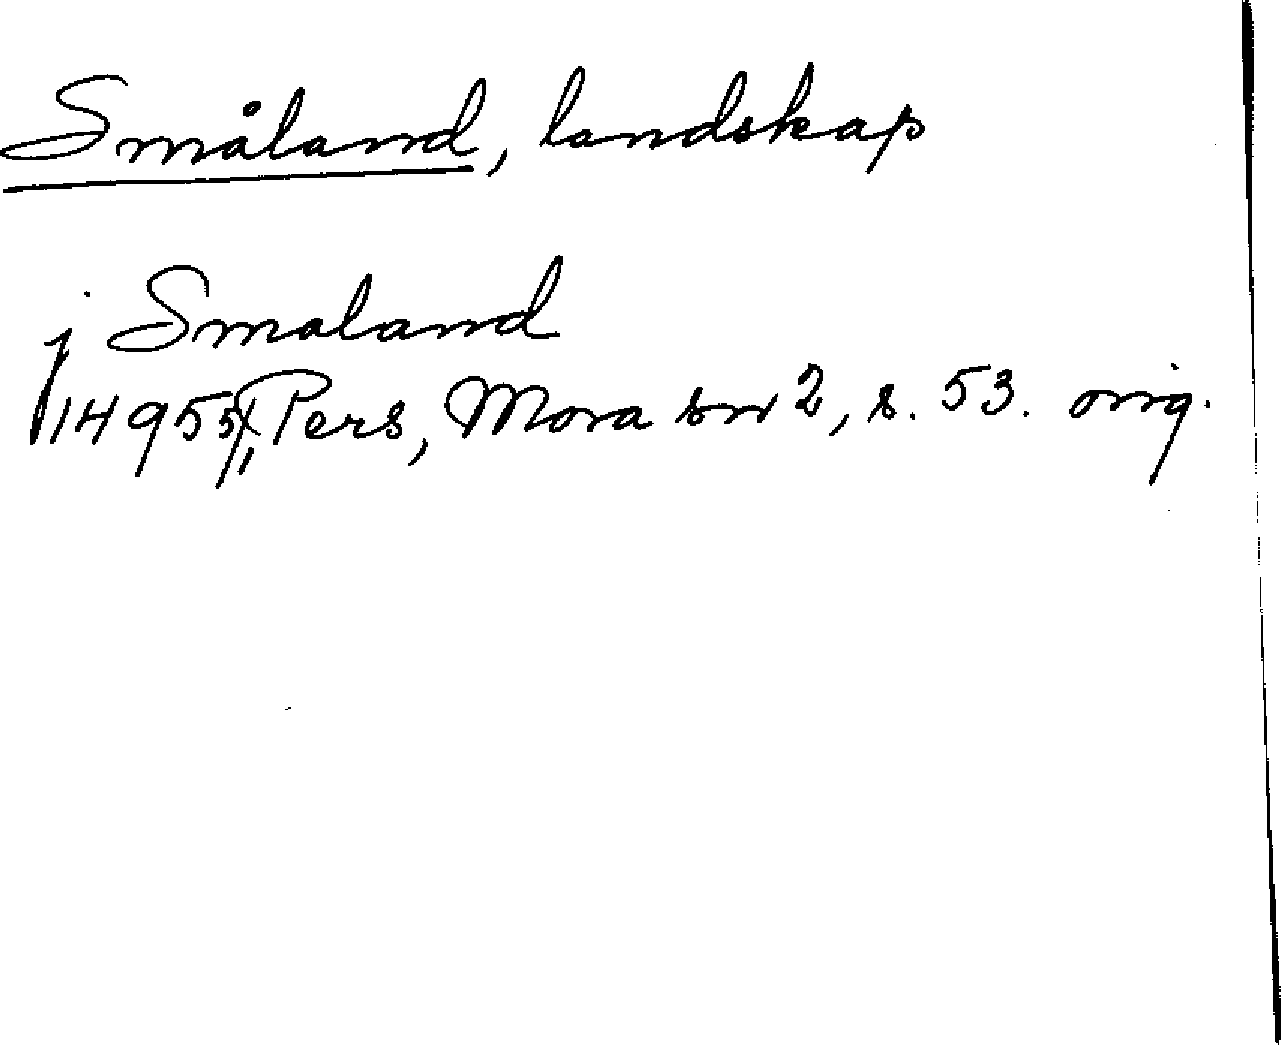 Småland, landskap
j Smaland
1495 5/1, Pers, Mora sn 2, s. 53. orig.